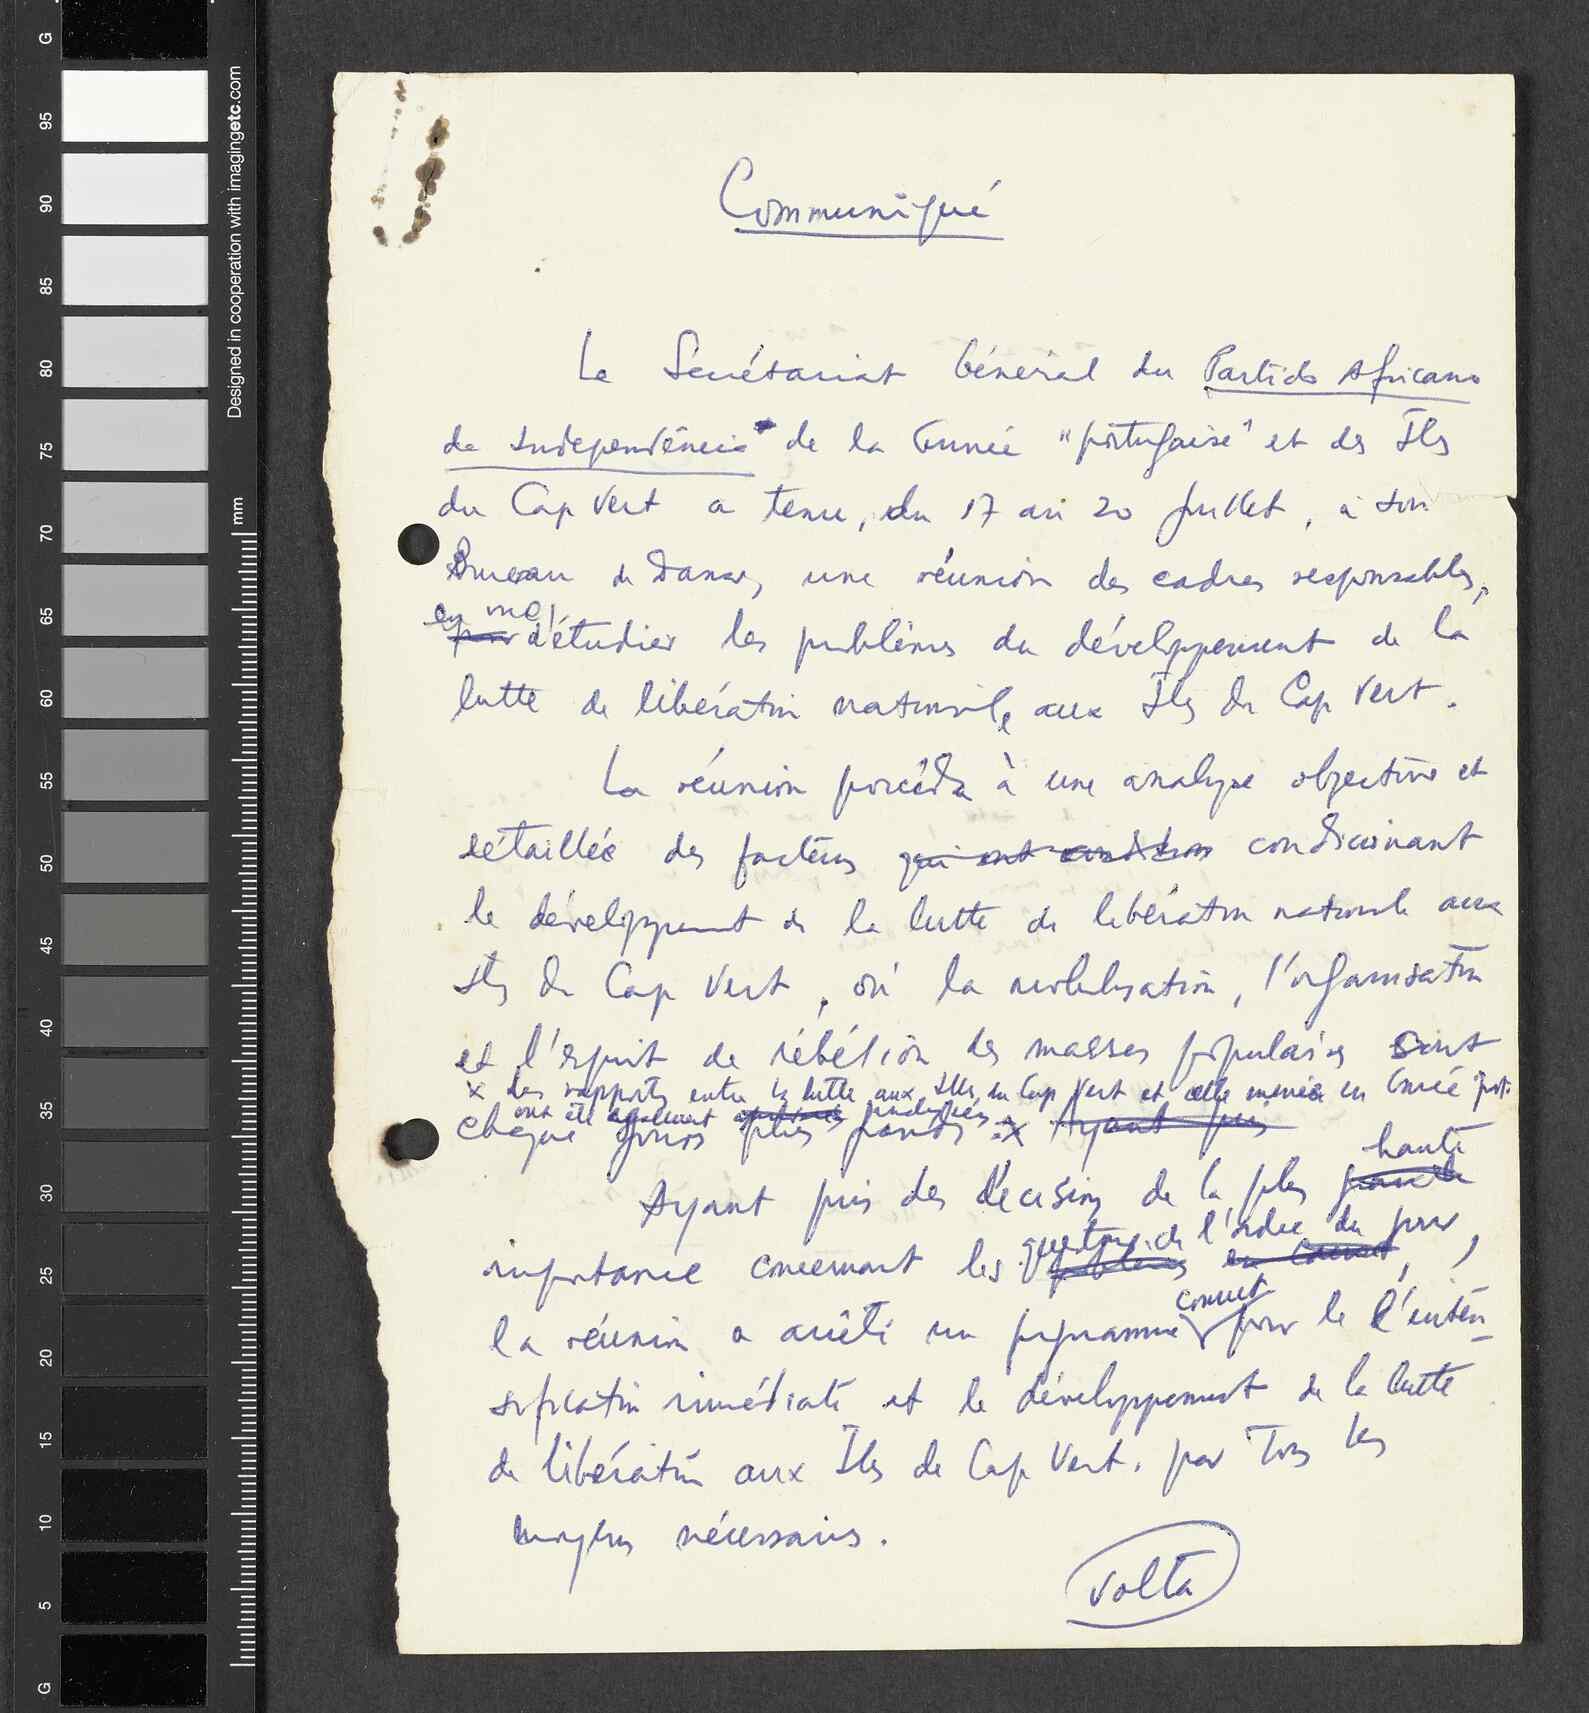 Communiqué
Le Secrétariat Général du Partido Africano
da Independência de la Guinée "portugaise" et des Iles
du Cap Vert a tenu, du 17 au 20 Juillet, à son
Bureau de Dakar, une réunion des cadres responsables,
en vue
pour d'étudier les problèmes du développement de la
lutte de libération nationale aux Iles du Cap Vert.
La réunion procéda à une analyse objective et
détaillée des facteurs qui ont condicionant
le développement de la lutte de libération nationale aux
Iles du Cap Vert, où la mobilisation, l'organisation
et l'esprit de rébélion des masses populaires sont
x Les rapports entre la lutte aux Iles du Cap Vert et celle menée en Guinée port.
ont été également analysés
chaque jours plus grands. x Ayant pris
haute
Ayant pris des décisions de la plus grande
questions de l'ordre du jour,
importance concernant les problèmes en
concret
la réunion a arrêté un programme pour le l'inten-
sification immédiate et le développement de la lutte
de libération aux Iles de Cap Vert. par tous les
moyens nécessaires.
Volta
Designed in cooperation with imagingetc.com
mm
G
95
90
85
80
75
70
65
60
55
50
45
40
35
30
25
20
15
10
5
G